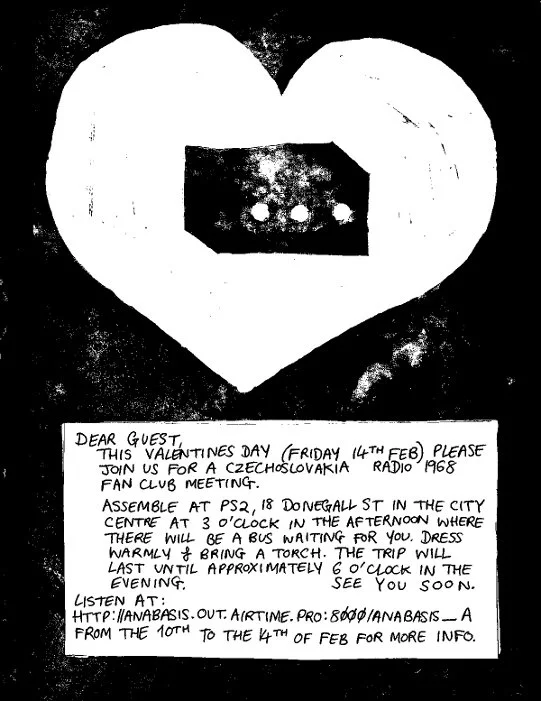 DEAR GUEST,
THIS VALENTINES DAY (FRIDAY 14TH FEB) PLEASE
JOIN US FOR A CZECHOSLOVAKIA RADIO 1968
FAN CLUB MEETING.
ASSEMBLE AT PS2, 18 DONEGALL ST IN THE CITY
CENTRE AT 3 O'CLOCK IN THE AFTERNOON WHERE
THERE WILL BE A BUS WAITING FOR YOU. DRESS
WARMLY & BRING A TORCH. THE TRIP WILL
LAST UNTIL APPROXIMATELY 6 O'CLOCK IN THE
EVENING. SEE YOU SOON.
LISTEN AT:
HTTP://ANABASIS.OUT.AIRTIME.PRO:8000/ANABASIS_A
FROM THE 10TH TO THE 14TH OF FEB FOR MORE INFO.